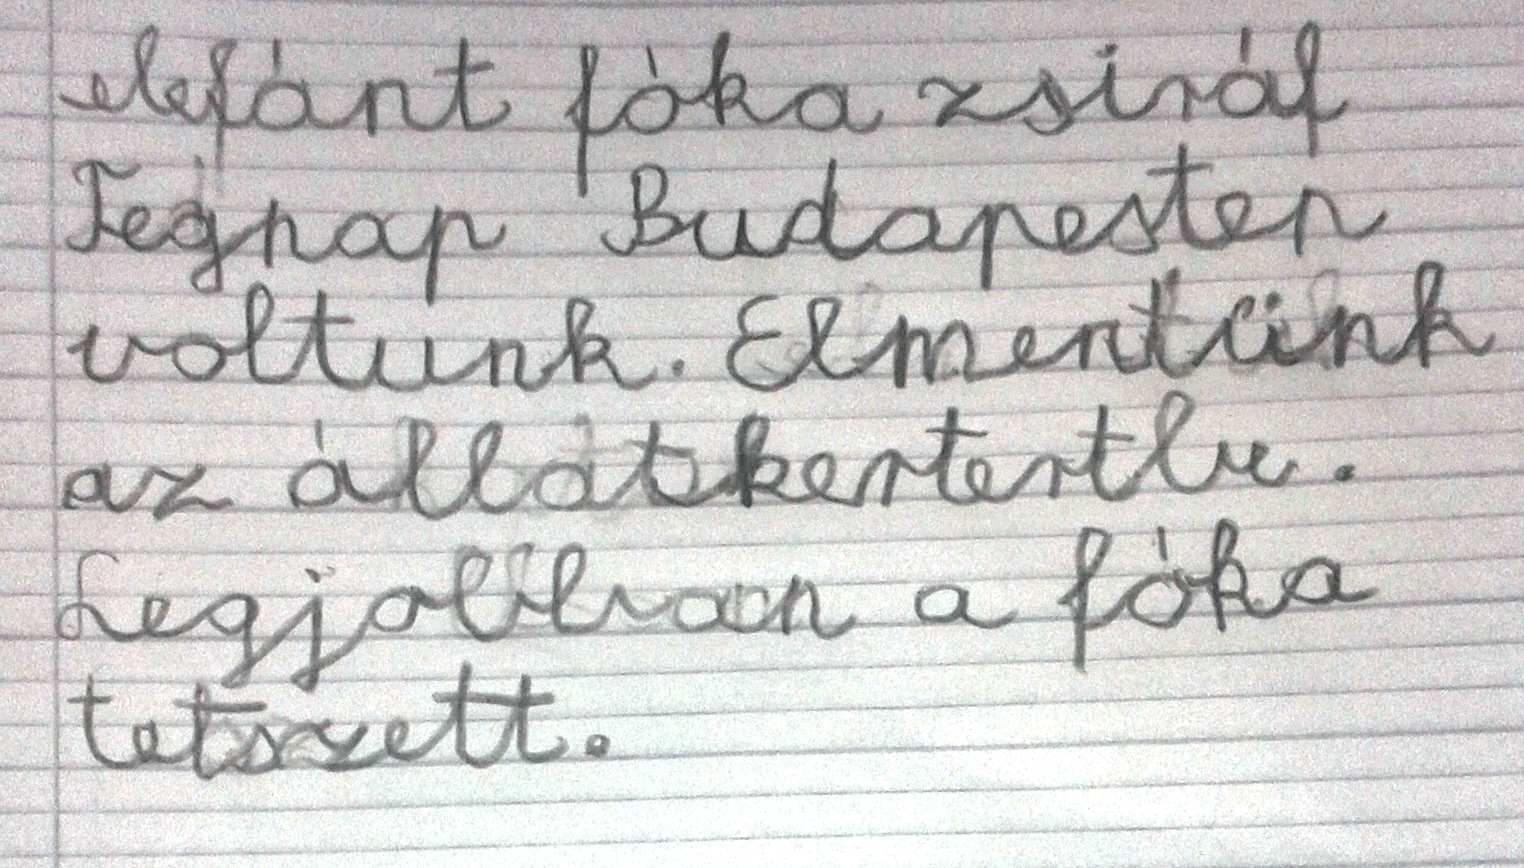 elefánt fóka zsiráf
Tegnap Budapesten
voltunk. Elmentünk
az állátkertertbe.
Legjobban a fóka
tetszett.